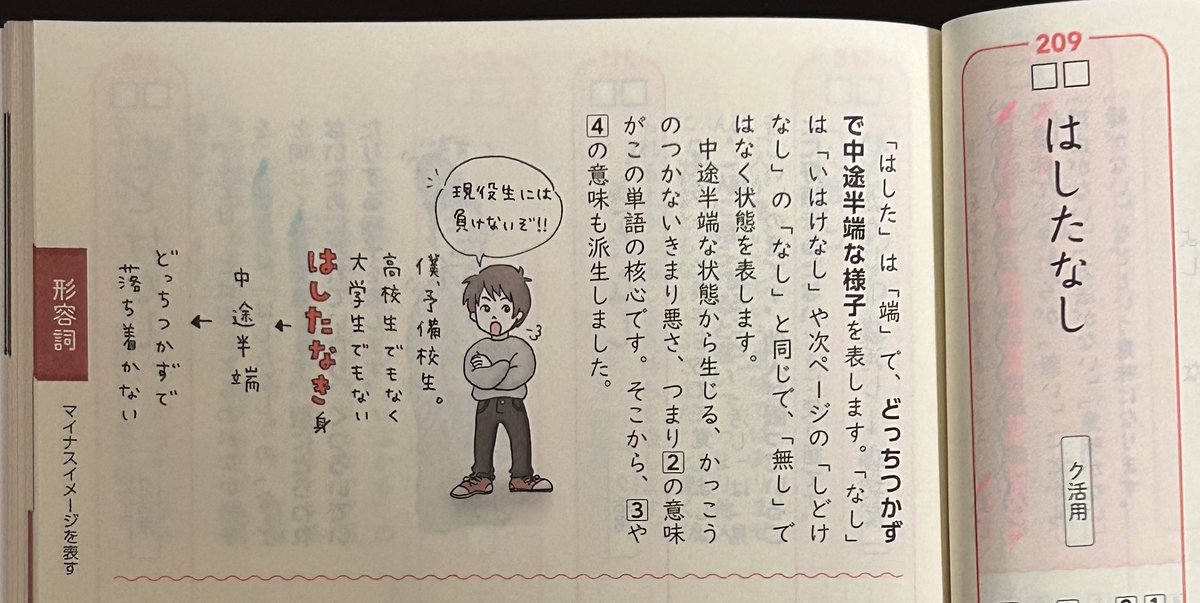 209
はしたなし
ク活用
「はした」は「端」で、どっちつかず
で中途半端な様子を表します。「なし」
は「いはけなし」や次ページの「しどけ
なし」の「なし」と同じで、「無し」で
はなく状態を表します。
中途半端な状態から生じる、かっこう
のつかないきまり悪さ、つまり2の意味
がこの単語の核心です。そこから、3や
4の意味も派生しました。
現役生には
負けないぞ!!
僕、予備校生。
高校生でもなく
大学生でもない
はしたなき身
中途半端
どっちつかずで
落ち着かない
形容詞
マイナスイメージを表す